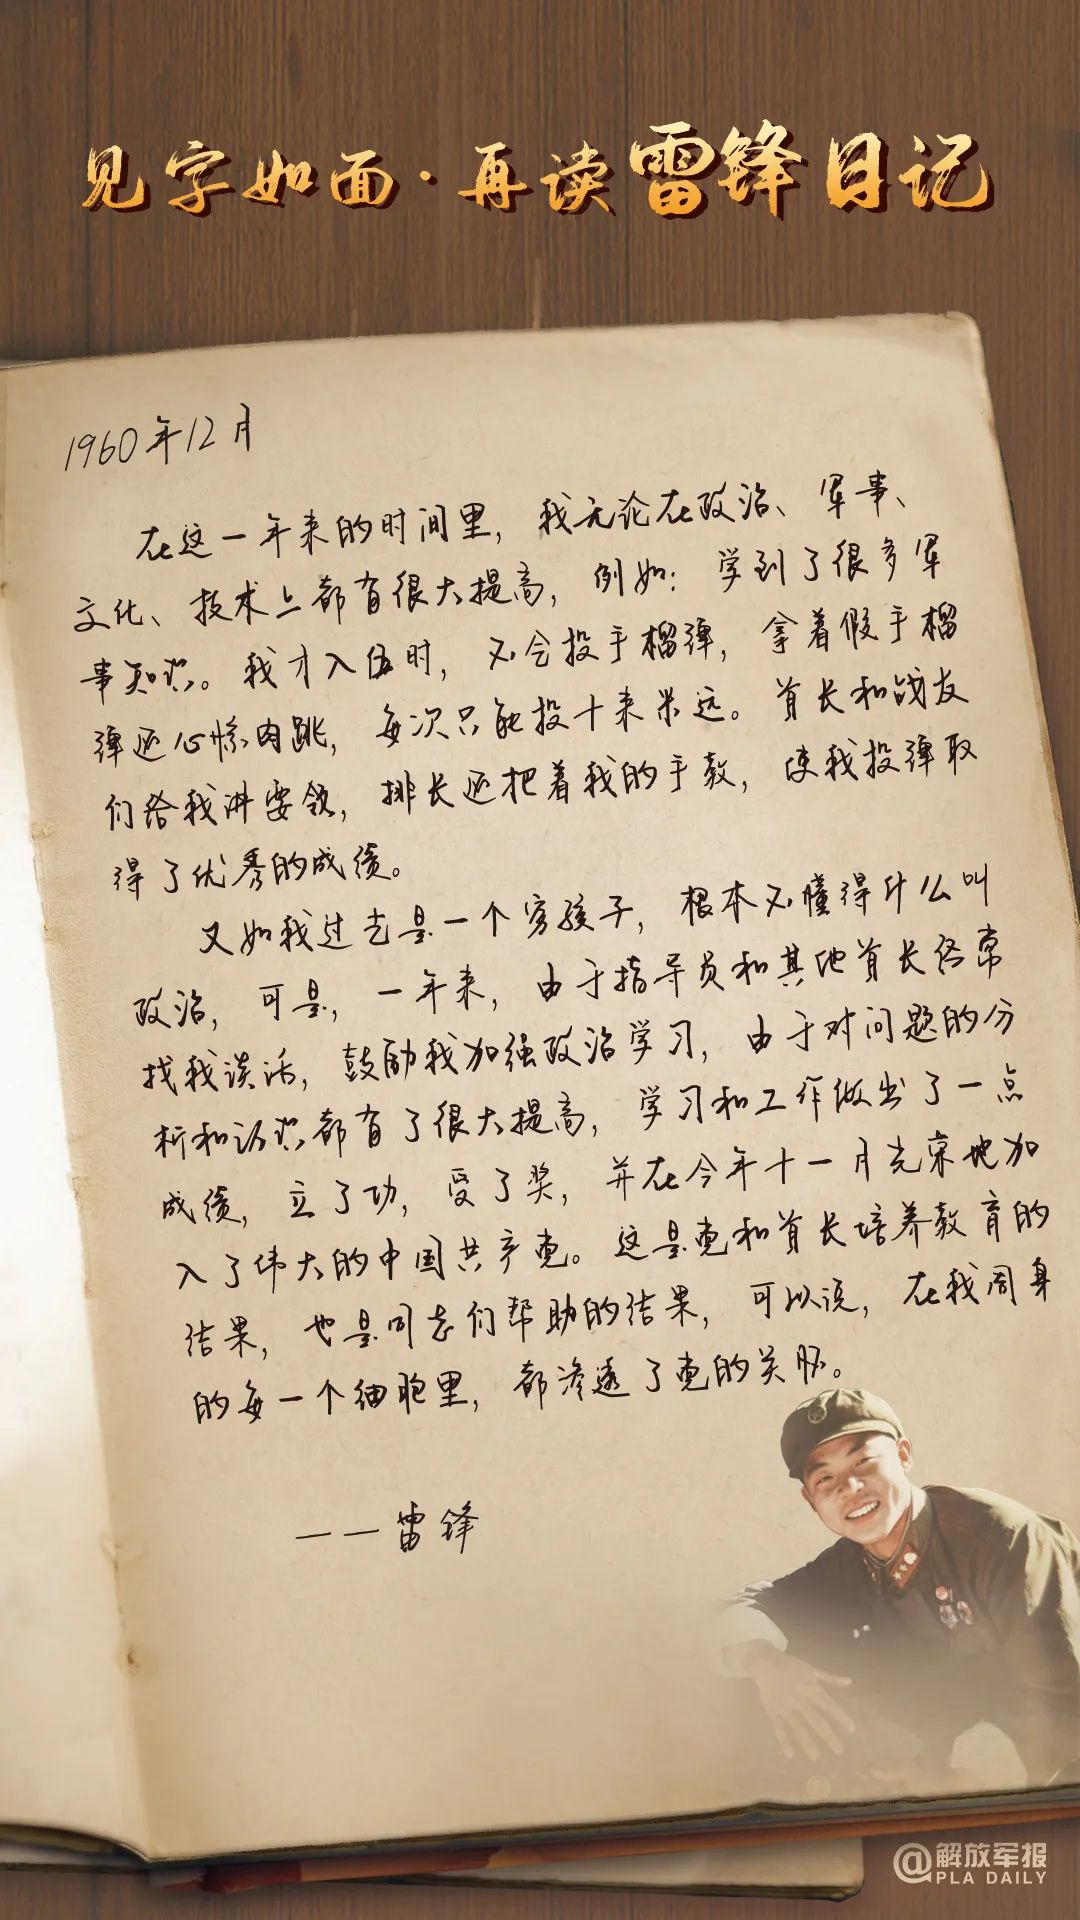 见字如面·再读雷锋日记
1960年12月
在这一年来的时间里，我无论在政治、军事、
文化、技术上都有很大提高，例如：学到了很多军
事知识。我才入伍时，不会投手榴弹，拿着假手榴
弹还心惊肉跳，每次只能投十来米远。首长和战友
们给我讲要领，排长还把着我的手教，使我投弹取
得了优秀的成绩。
又如我过去是一个穷孩子，根本不懂得什么叫
政治，可是，一年来，由于指导员和其他首长经常
找我谈话，鼓励我加强政治学习，由于对问题的分
析和认识都有了很大提高，学习和工作做出了一点
成绩，立了功，受了奖，并在今年十一月光荣地加
入了伟大的中国共产党。这是党和首长培养教育的
结果，也是同志们帮助的结果，可以说，在我周身
的每一个细胞里，都渗透了党的关怀。
——雷锋
@解放军报
PLA DAILY